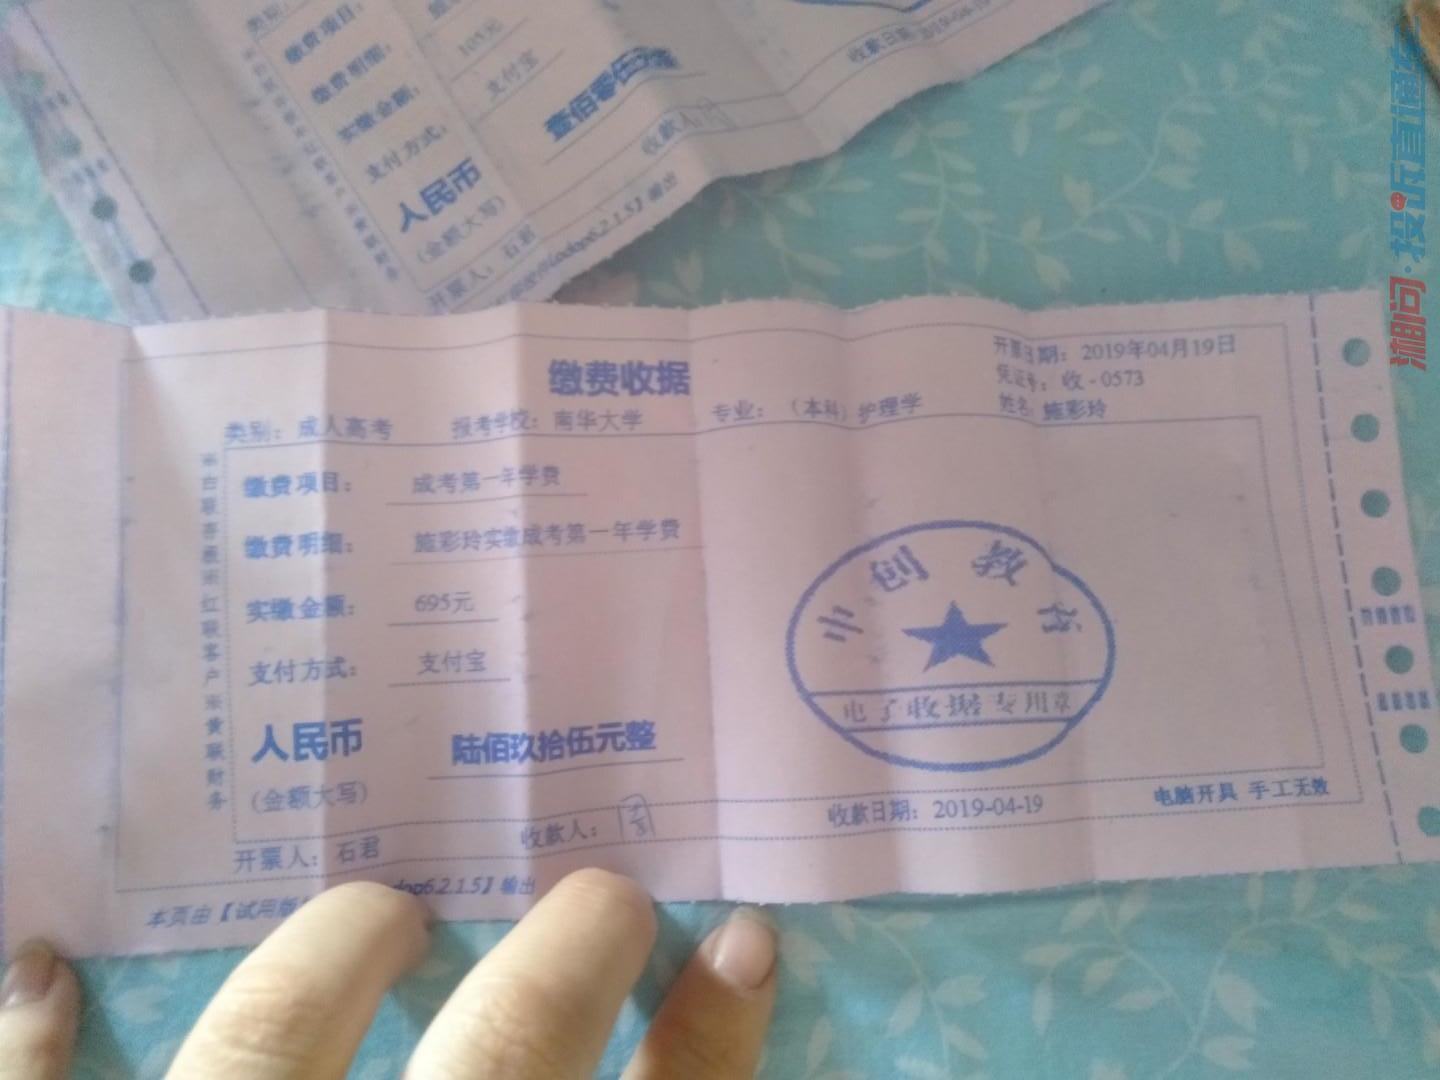 缴费项目：
缴费明细：
实缴金额：
105元
支付方式：
支付宝
人民币
壹佰零伍元整
(金额大写)
收款人：
收款日期：2019-04-19
开票人：石君
6.2.1.5】输出
湘问·投诉直通车
缴费收据
开票日期：2019年04月19日
凭证号：收-0573
类别：成人高考 报考学校：南华大学 专业：（本科）护理学 姓名：施彩玲
缴费项目：成考第一年学费
缴费明细：施彩玲实缴成考第一年学费
实缴金额：695元
支付方式：支付宝
人民币 陆佰玖拾伍元整
(金额大写)
创教
电子收据专用章
红联客户※黄联财务
开票人：石君 收款人： 收款日期：2019-04-19 电脑开具 手工无效
本页由【试用版 dop6.2.1.5】输出